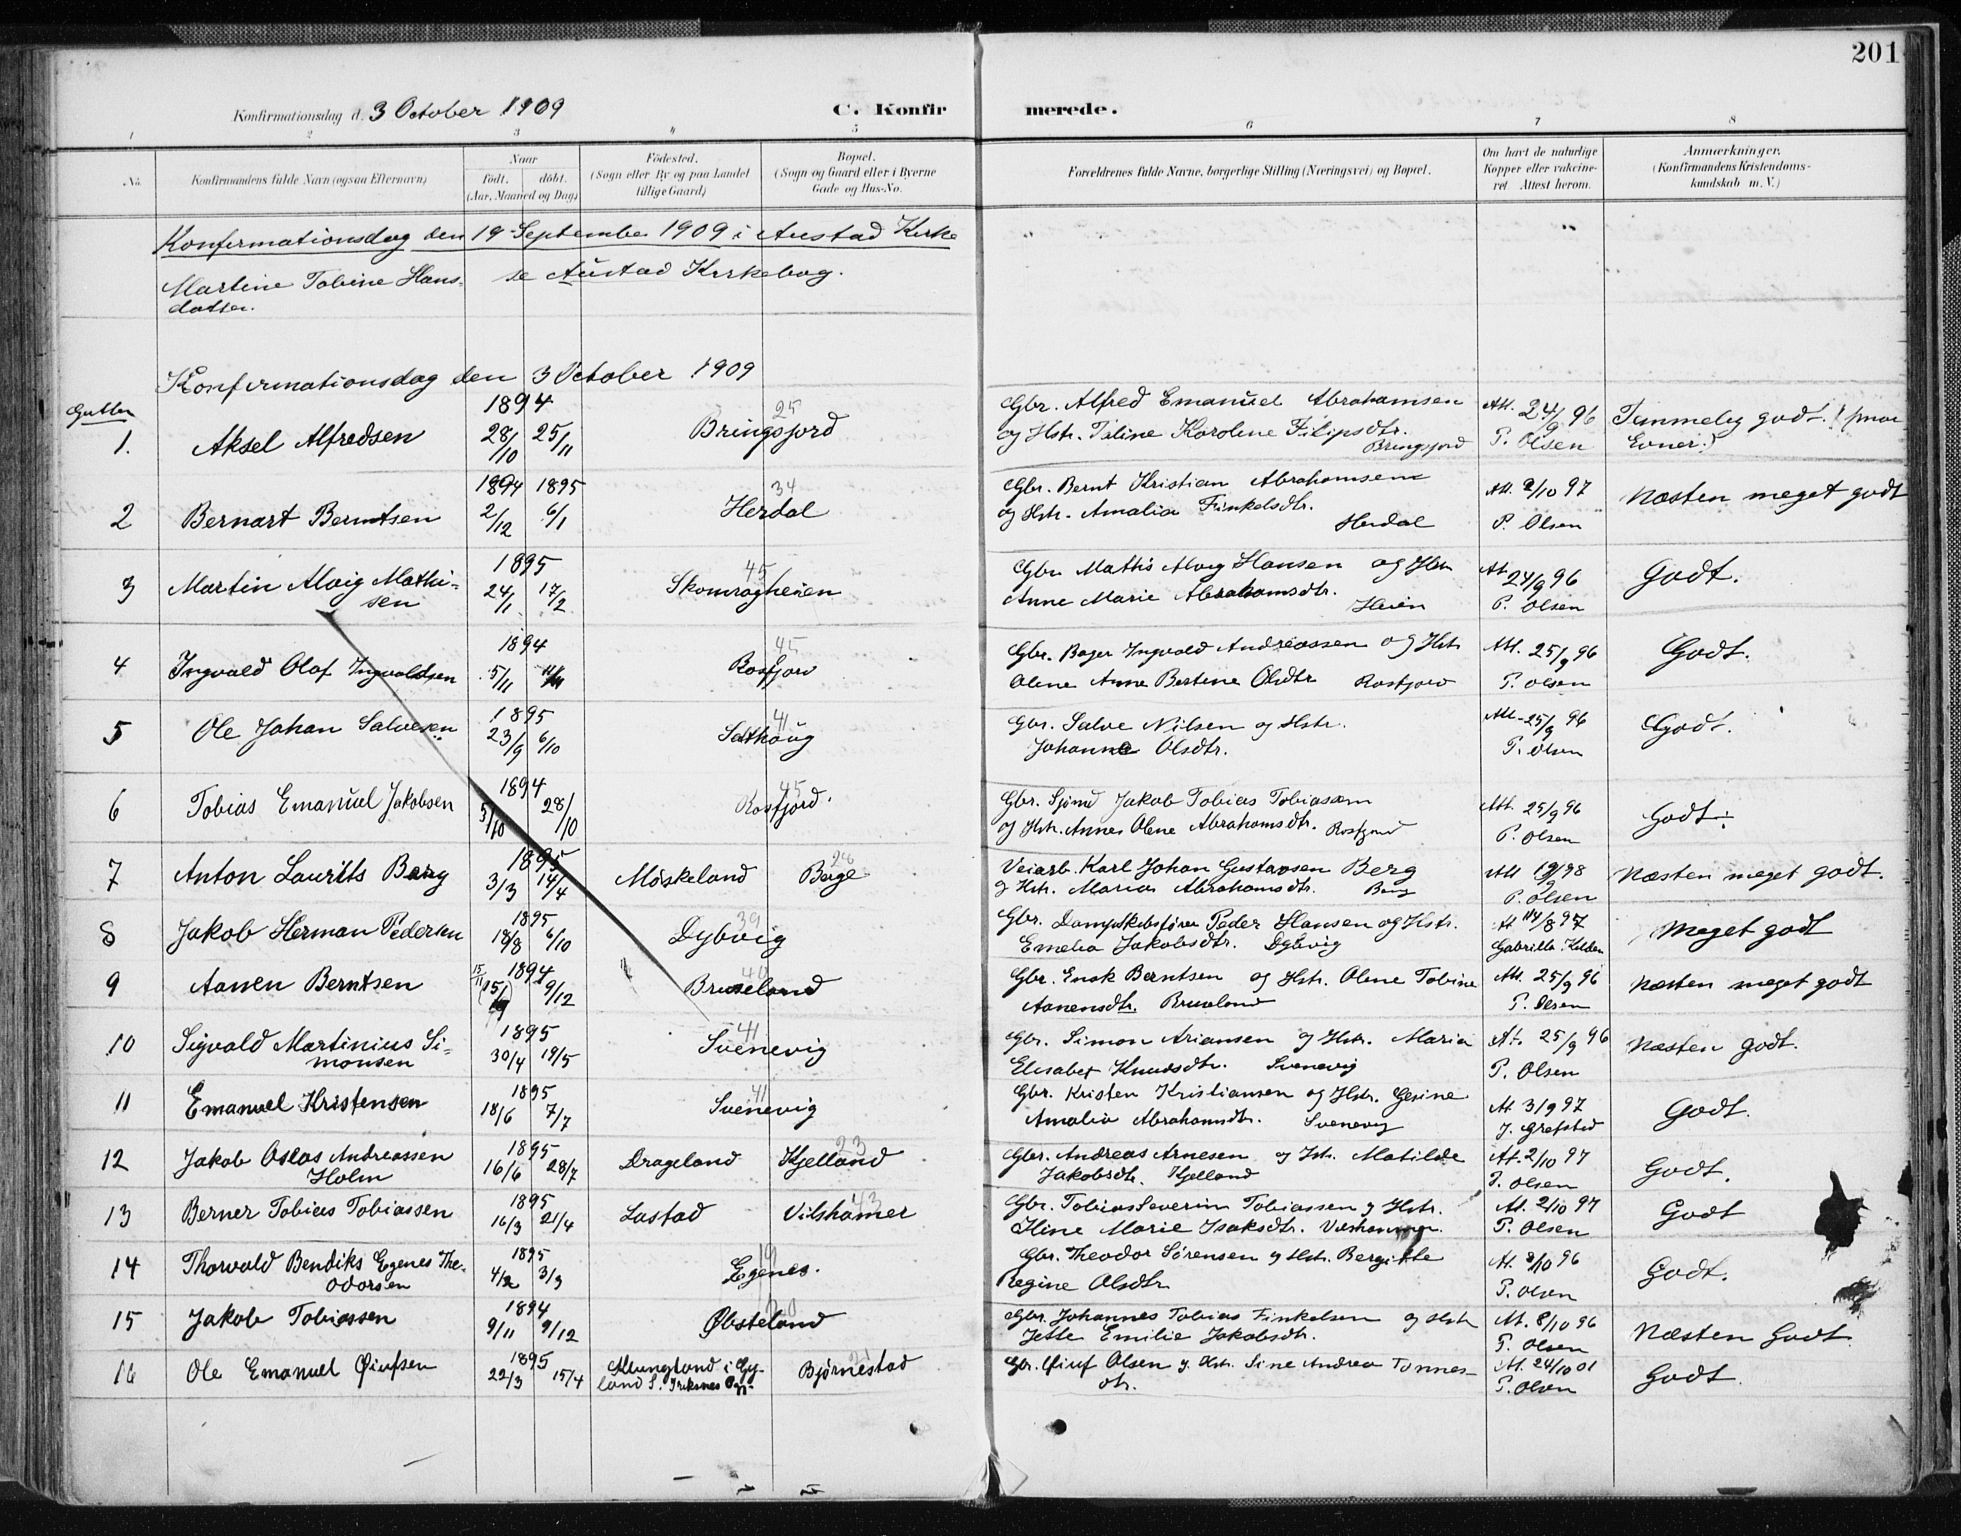 201
Konfirmationsdag d. 3 October 1909
C. Konfirmerede.
1 2 3 4 5 6 7 8
No.
Konfirmandens fulde Navn (ogsaa Efternavn)
Naar
födt. döbt.
(Aar, Maaned og Dag)
Födested.
(Sogn eller By og paa Landet
tillige Gaard)
Bopæl.
(Sogn og Gaard eller i Byerne
Gade og Hus-No.
Forældrenes fulde Navne, borgerlige Stilling (Næringsvei) og Bopæl.
Om havt de naturlige
Kopper eller vaccine-
ret. Attest herom.
Anmærkninger.
(Konfirmandens Kristendoms-
kundskab m. V.)
Konfirmationsdag den 19 September 1909 i Austad Kirke
Martine Tobine Hans- se Austad Kirkebog.
datter.
Konfirmationsdag den 3 October 1909
Gutter
1. Aksel Alfredsen 1894 28/10 25/11 Bringsjord 25
Gbr. Alfred Emanuel Abrahamsen
og Hstr. Taline Karoline Filipsdtr.
Bringsjord
Att. 24/9 96
P. Olsen
Temmelig godt. (smaa
Evner.)
2 Bernart Berntsen 1894 2/12 1895 6/1 Herdal 34
Gbr. Bernt Kristian Abrahamsen
og Hstr. Amalia Finkelsdtr.
Herdal
Att. 2/10 97
P. Olsen
Næsten meget godt
3 Martin Alvig Mathi-
sen
1895 24/1 17/2 Skomragheien 45
Gbr. Mathis Alvig Hansen og Hstr
Anne Marie Abrahamsdtr.
Heien
At. 24/9 96
P. Olsen
Godt.
4 Ingvald Olaf Ingvaldsen 1894 5/11 Rosfjord 45
Gbr. Bager Ingvald Andreassen og Hstr
Olene Anne Bertine Olsdtr Rosfjord
Att. 25/9 96
P. Olsen
Godt.
5 Ole Johan Salvesen 1895 23/9 6/10 Salthaug 41
Gbr. Salve Nilsen og Hstr.
Johanne Olsdtr.
Att. 25/9 96
P. Olsen
Godt.
6 Tobias Emanuel Jakobsen 1894 5/10 28/10 Rosfjord. 45
Gbr. Sjömd Jakob Tobias Tobiassen
og Hstr. Annes Olene Abrahamsdtr. Rosfjord
Att. 25/9 96
P. Olsen
Godt.
7 Anton Laurits Berg 1895 3/3 14/4 Møskeland Berge 28
Veiarb. Karl Johan Gustavsen Berg
og Hstr. Maria Abrahamsdtr. Berg
Att
P. Olsen
Næsten meget godt.
8 Jakob Herman Pedersen 1895 18/8 6/10 Dybvig 39
Gbr. Dampskibsfører Peder Hansen og Hstr.
Emelia Jakobsdtr. Dybvig
At 14/8 97
Gabrille
Meget godt
9 Aanen Berntsen 15/11 1894 9/12 Bruseland 40
Gbr. Enok Berntsen og Hstr. Olene Tobine
Aanensdtr. Bruseland
Att. 25/9 96
P. Olsen
Næsten meget godt
10 Sigvald Martinius Si-
monsen
1895 30/4 19/5 Svenevig 41
Gbr. Simon Ariansen og Hstr. Maria
Elisabet Knudsdtr. Svenevig
At. 25/9 96
P. Olsen
Næsten godt.
11 Emanuel Kristensen 1895 18/6 7/7 Svenevig 41
Gbr. Kristen Kristiansen og Hstr. Gesine
Amalia Abrahamsdtr. Svenevig
At 3/9 97
J. Grefsted
Godt.
12 Jakob Oseas Andreassen
Holm
1895 16/6 28/7 Drageland Kjelland 23
Gbr. Andreas Arnesen og Hstr. Matilde
Jakobsdtr. Kjelland
At. 2/10 97
P. Olsen
Godt.
13 Berner Tobias Tobiassen 1895 16/3 21/4 Lastad Vilshamer 43
Gbr. Tobias Severin Tobiassen og Hstr.
Iline Marie Isaksdtr. Vilshammer
At. 2/10 97
P. Olsen
Godt
14 Thorvald Bendiks Egenes The-
odorsen
1895 4/2 3/3 Egenes. 19
Gbr. Theodor Sørensen og Hstr. Bergitte
Regine Olsdtr
At. 8/10 96
P. Olsen
Godt.
15 Jakob Tobiassen 1894 9/11 9/12 Øbsteland 20
Gbr. Johannes Tobias Finkelsen og Hstr
Jette Emilie Jakobsdtr.
At. 8/10 96
P. Olsen
Næsten Godt.
16 Ole Emanuel Øiufsen 1895 22/3 15/4 i Gy-
land Bjørnestad 21
Gbr. Øiuf Olsen og Hstr. Sine Andrea Tønnes-
dtr.
At. 24/10 01
P. Olsen
Godt.